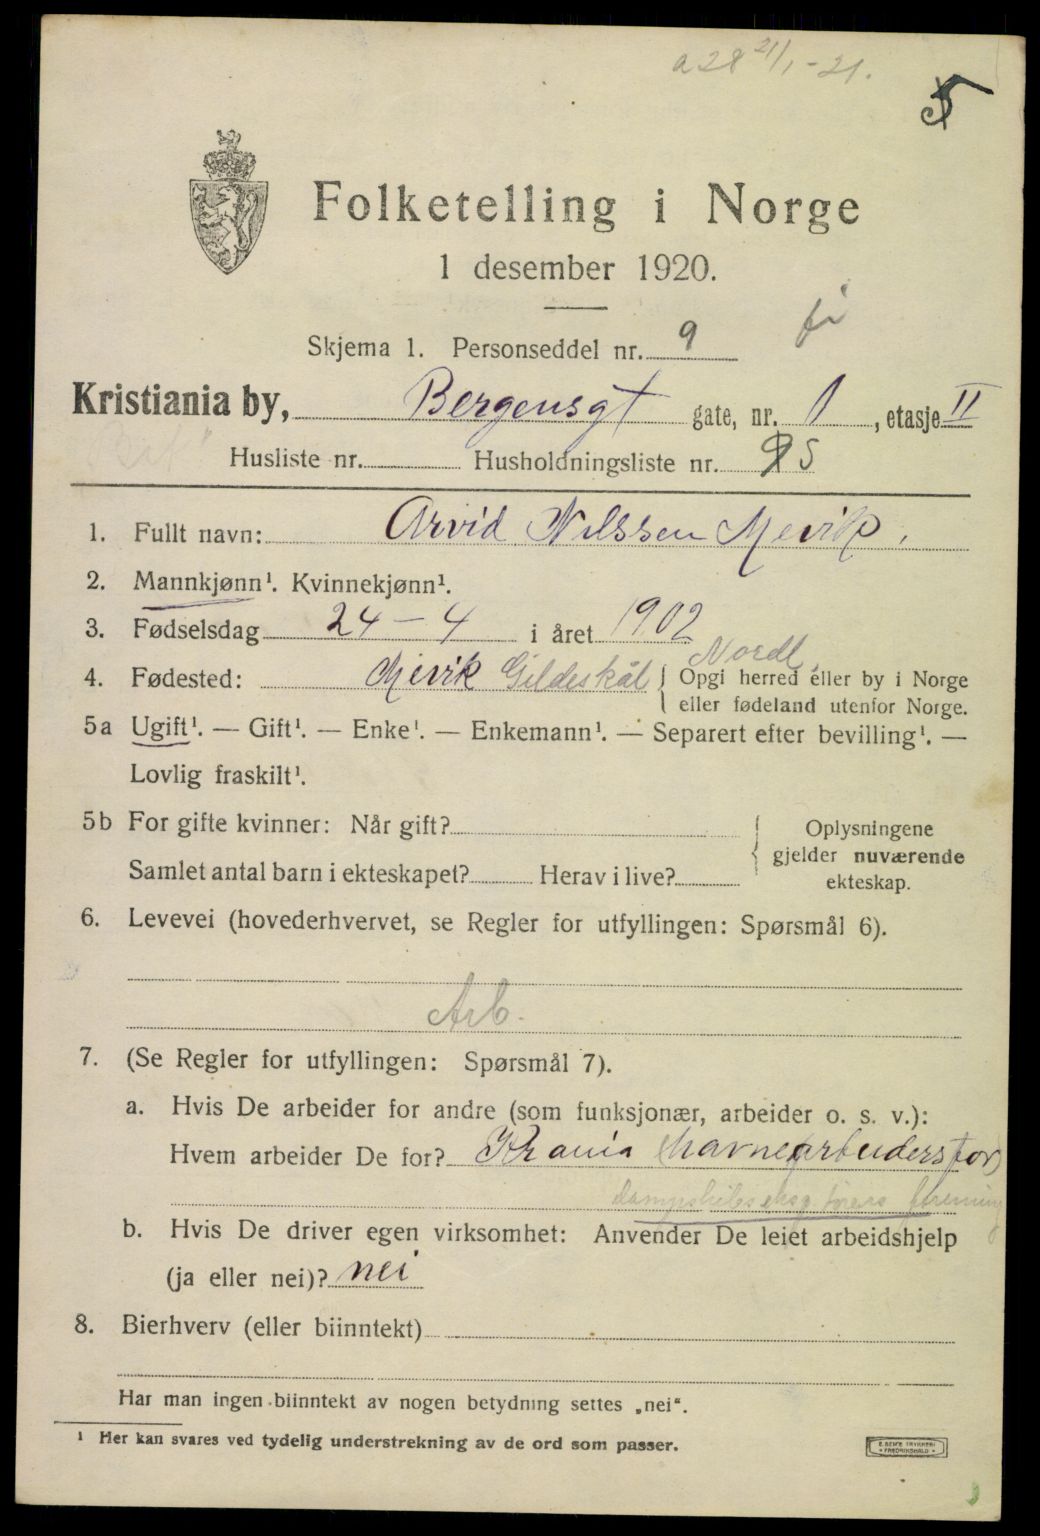 a28 21/1-21.
5
Folketelling i Norge
1 desember 1920.
Skjema 1. Personseddel nr. 9
Kristiania by, Bergensgt gate, nr. 1, etasje II
Husliste nr. Husholdningsliste nr. 5
1. Fullt navn: Arvid Nilssen Mevik.
2. Mannkjønn¹. Kvinnekjønn¹.
3. Fødselsdag 24 - 4 i året 1902
Nordl.
4. Fødested: Mevik Gildeskål Opgi herred eller by i Norge
eller fødeland utenfor Norge.
5a Ugift¹. — Gift¹. — Enke¹. — Enkemann¹. — Separert efter bevilling¹. —
Lovlig fraskilt¹.
5b For gifte kvinner: Når gift?
Samlet antal barn i ekteskapet? Herav i live?
Oplysningene
gjelder nuværende
ekteskap.
6. Levevei (hovederhvervet, se Regler for utfyllingen: Spørsmål 6).
Arb.
7. (Se Regler for utfyllingen: Spørsmål 7).
a. Hvis De arbeider for andre (som funksjonær, arbeider o. s. v.):
Hvem arbeider De for? Krania havnearbeidersfor
dampskibseksp. forening
b. Hvis De driver egen virksomhet: Anvender De leiet arbeidshjelp
(ja eller nei)? nei
8. Bierhverv (eller biinntekt)
Har man ingen biinntekt av nogen betydning settes „nei“.
¹ Her kan svares ved tydelig understrekning av de ord som passer.
E. SEM'S TRYKKERI
• FREDRIKSHALD •